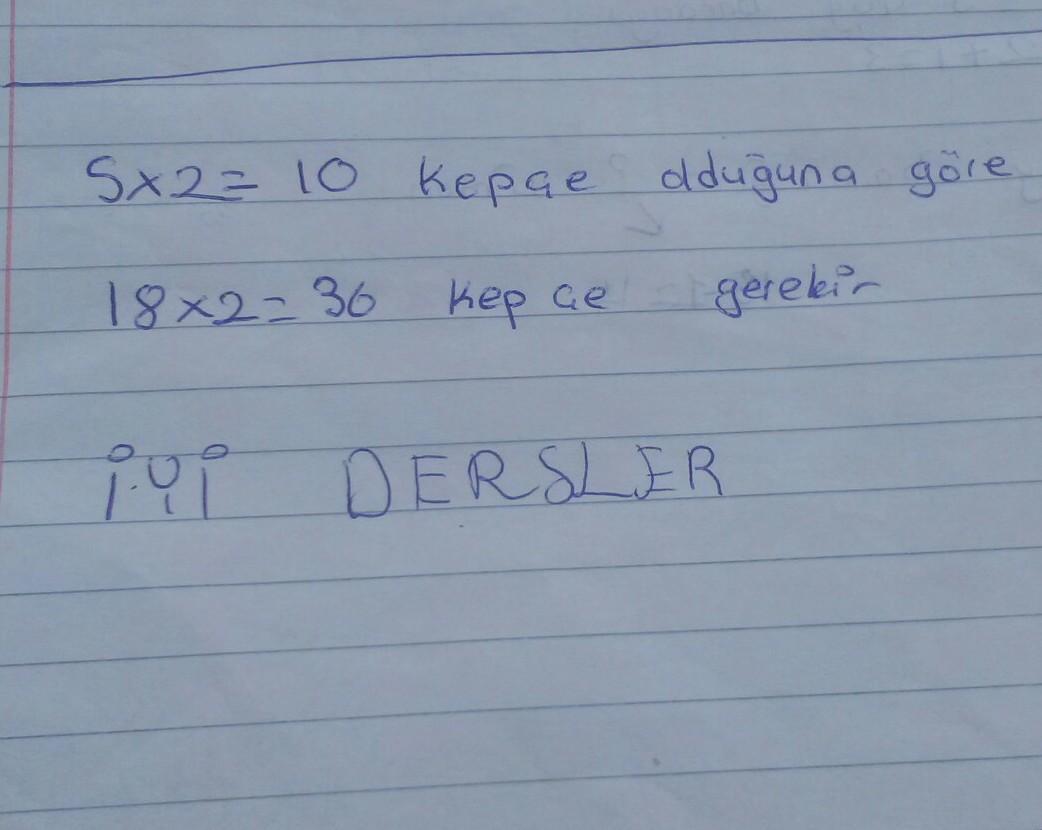 5x2= 10 kepçe olduğuna göre
18x2= 36 kepçe gerekir
İYİ DERSLER